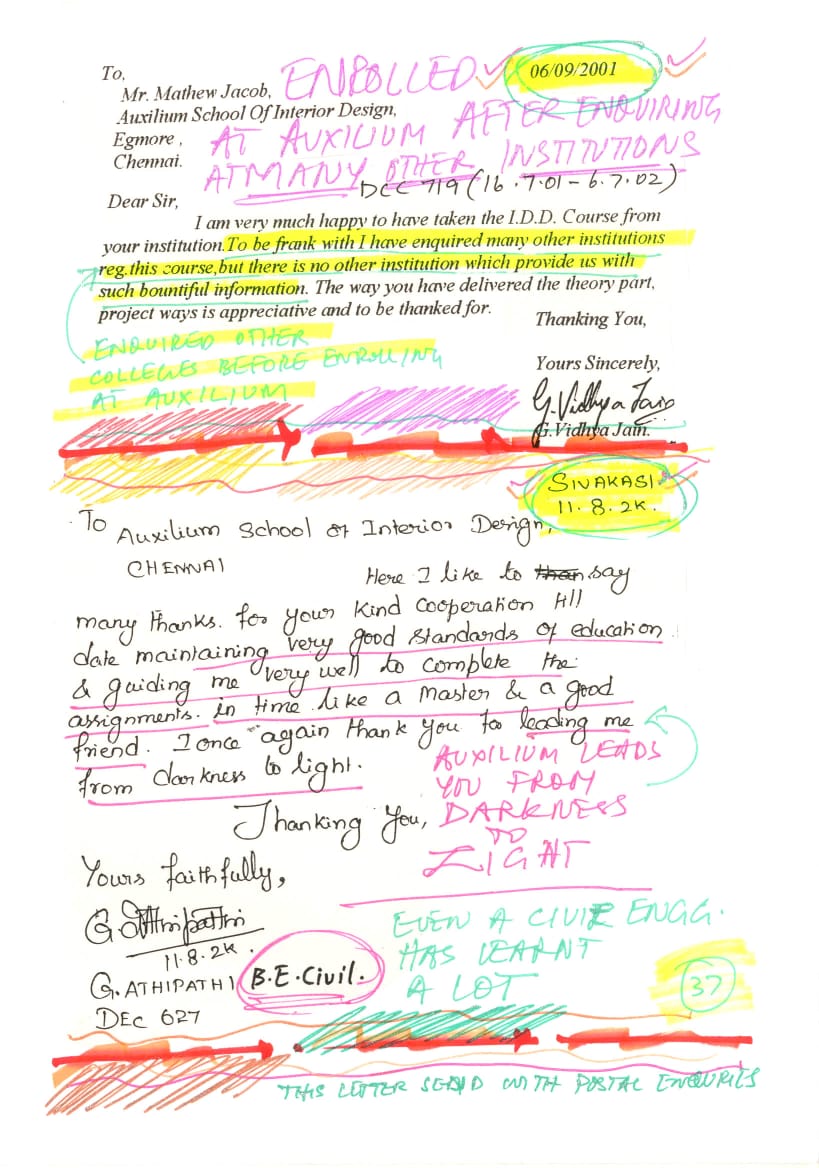 To,
ENROLLED
06/09/2001
Mr. Mathew Jacob,
Auxilium School Of Interior Design,
AT AUXILIUM AFTER ENQUIRING
Egmore ,
Chennai.
AT MANY OTHER INSTITUTIONS
DCC 719 (16.7.01 - 6.7.02)
Dear Sir,
I am very much happy to have taken the I.D.D. Course from
your institution.To be frank with I have enquired many other institutions
reg.this course,but there is no other institution which provide us with
such bountiful information. The way you have delivered the theory part,
project ways is appreciative and to be thanked for.
Thanking You,
ENQUIRED OTHER
COLLEGES BEFORE ENROLLING
AT AUXILIUM
Yours Sincerely,
G. Vidhya Jain
G.Vidhya Jain.
SIVAKASI
11.8.2K.
To
Auxilium School of Interior Design,
CHENNAI
Here I like to than say
many thanks. for your kind cooperation till
date maintaining very good standards of education
& guiding me very well to complete the
assignments. in time like a Master & a good
friend. I once again thank you for leading me
from darkness to light.
AUXILIUM LEADS
YOU FROM
DARKNESS
TO
LIGHT
Thanking You,
Yours faithfully,
G. Athipathi
11.8.2K.
G. ATHIPATHI
B.E.Civil.
DEC 627
EVEN A CIVIL ENGG.
HAS LEARNT
A LOT
37
THIS LETTER SEND WITH POSTAL ENQURIES